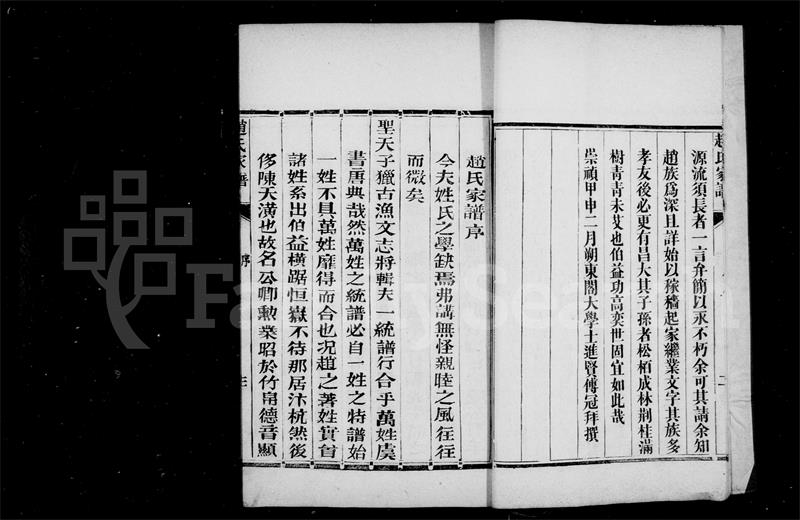 趙氏家譜
源流須長者一言弁簡以永不朽余可其請余知
趙族爲深且詳始以稼穡起家繼業文字其族多
孝友後必更有昌大其子孫者松栢成林荆桂滿
樹青青未艾也伯益功高奕世固宜如此哉
崇禎甲申二月朔東閣大學士進賢傅冠拜撰
二
趙氏家譜序
今夫姓氏之學缺焉弗講無怪親睦之風往往
而微矣
聖天子獵古漁文志將輯夫一統譜行合乎萬姓虞
書唐典哉然萬姓之統譜必自一姓之特譜始
一姓不具萬姓靡得而合也况趙之著姓實首
諸姓系出伯益橫踞恒嶽不待那居汴杭然後
侈陳天潢也故名公卿勲業昭於竹帛德音顯
趙氏家譜
序
三
FamilySearch